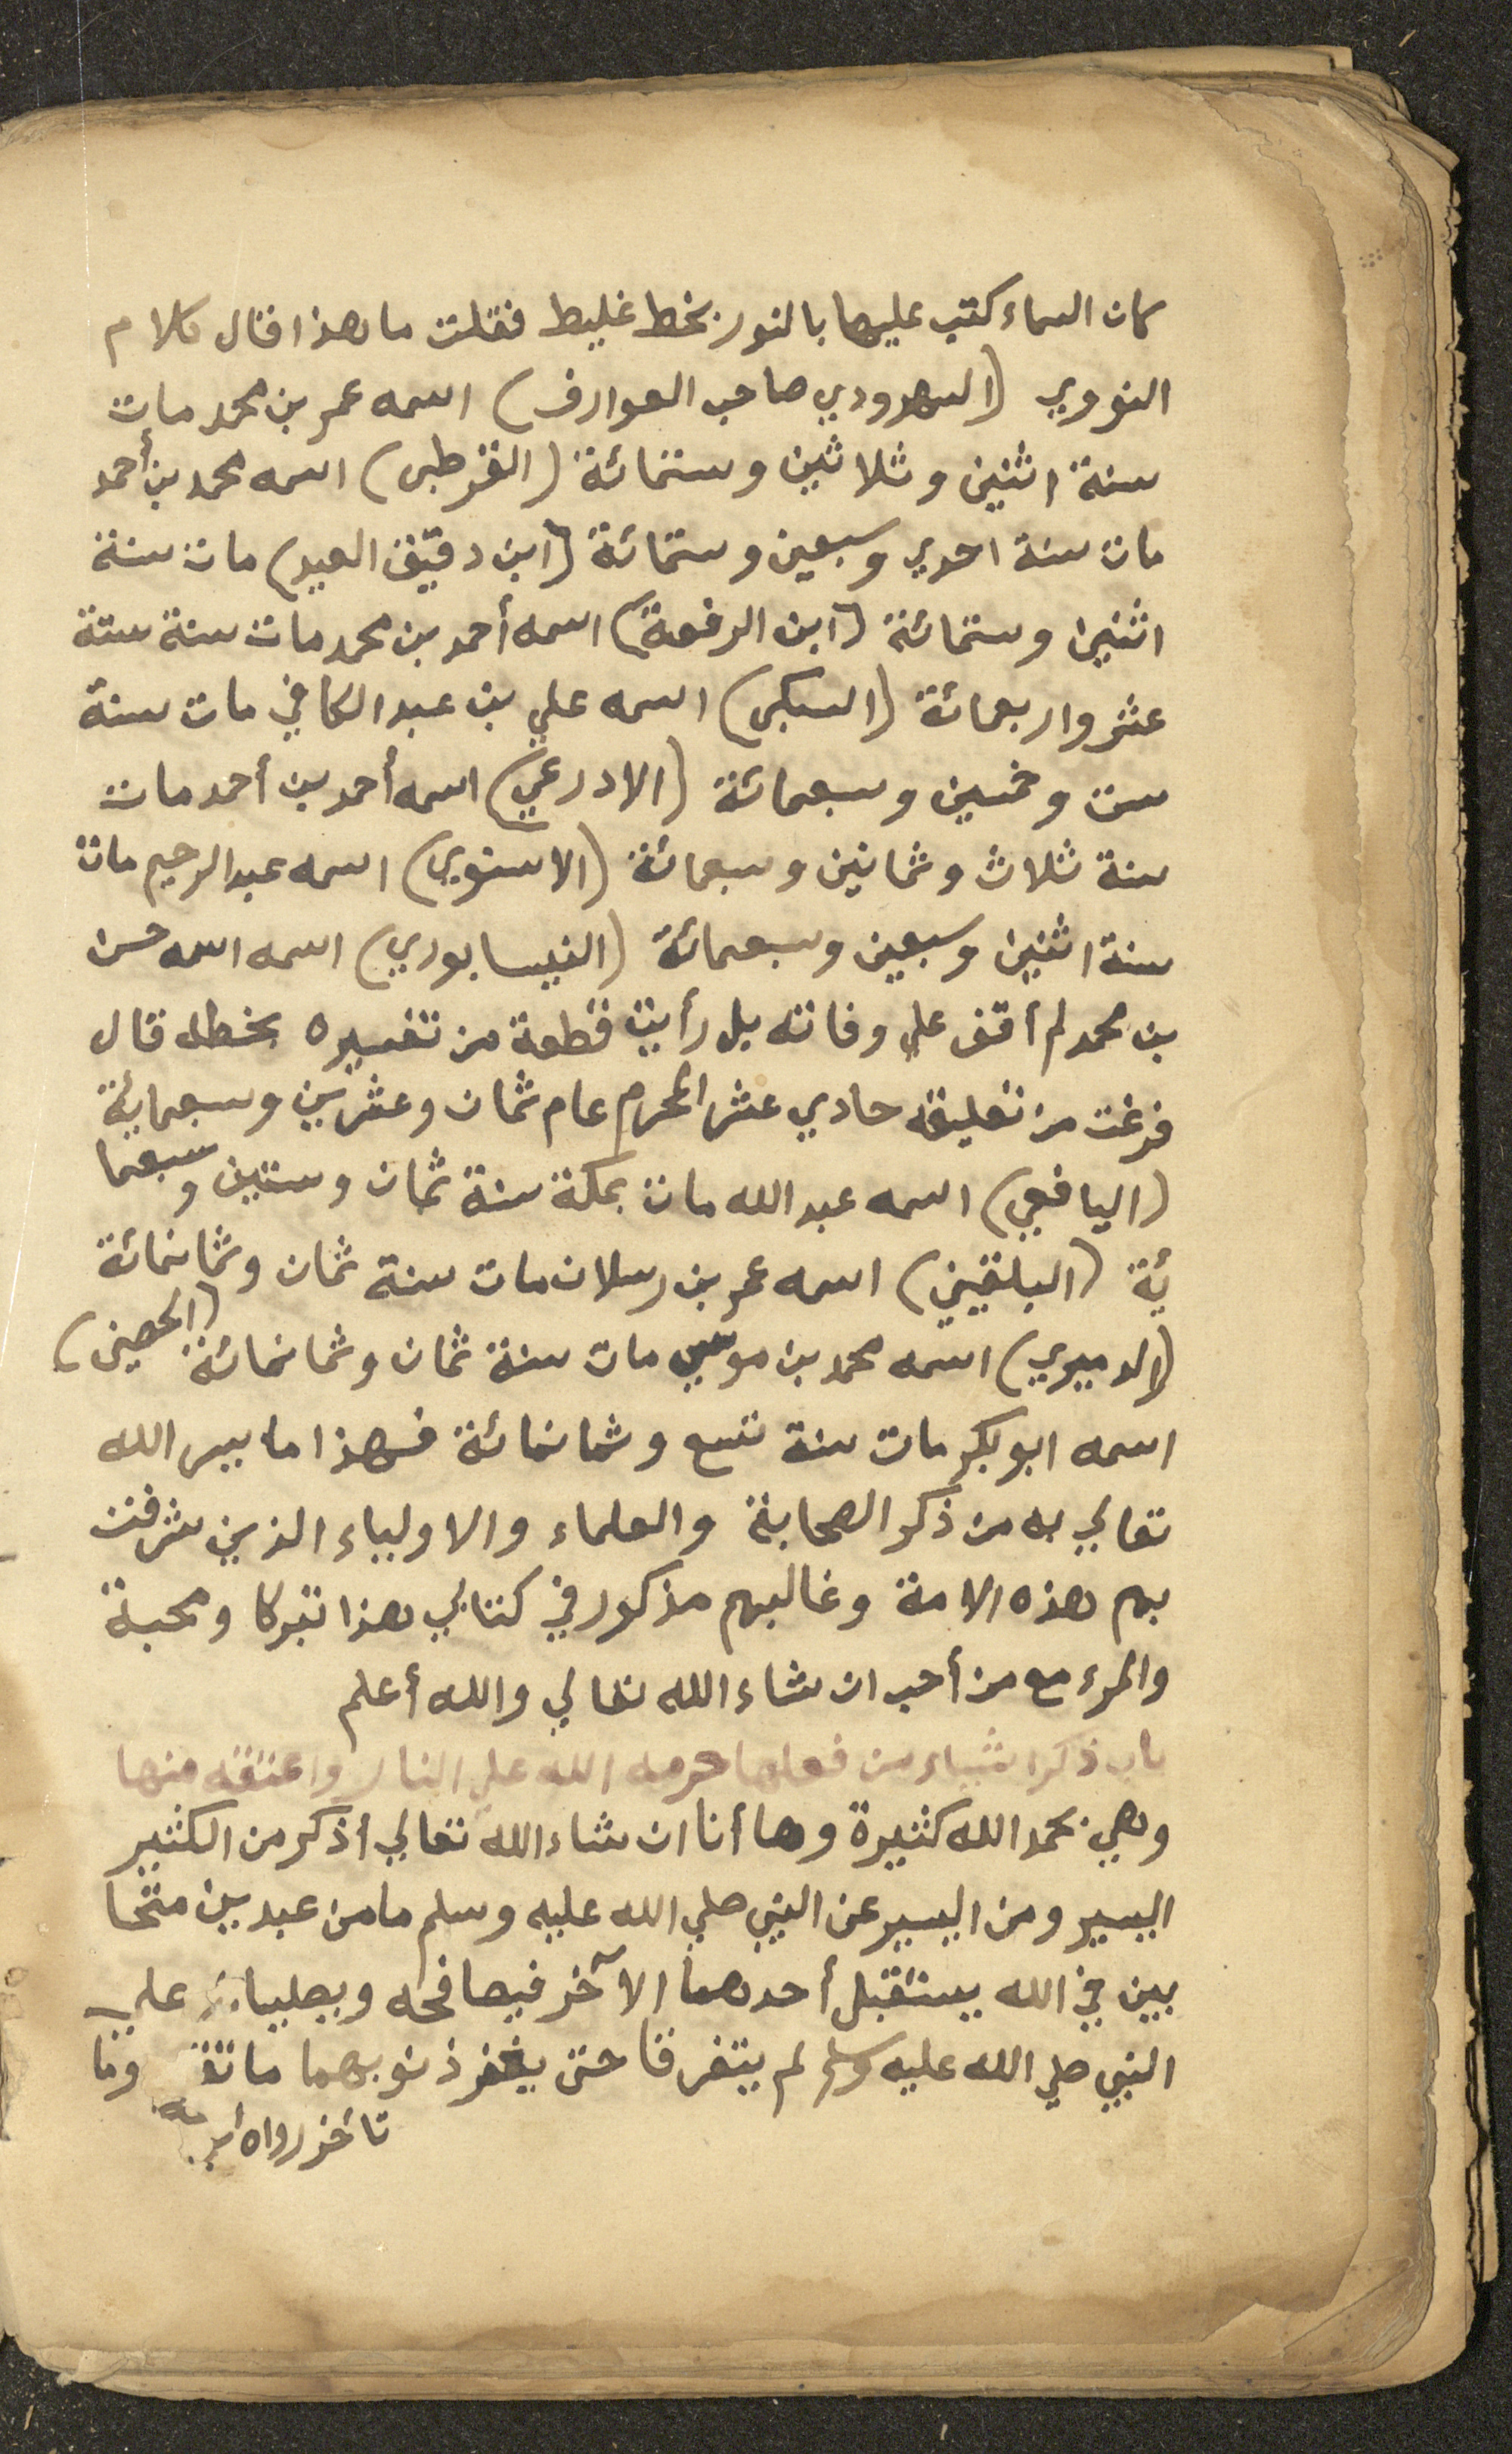 كان السماء كتب عليها بالنور بخط غليط فقلت ما هذا فقال كلام
النووي (السهرودي صاحب العوارف) اسمه عمر بن محمد مات
سنة اثنين وثلاثين وستمائة (القرطبى) اسمه محمد بن أحمد
مات سنة احدي وسبعين وستمائة (ابن دقيق العيد) مات سنة
اثنين وستمائة (ابن الرفعة) اسمه أحمد بن محمد مات سنة ستة
عشر واربعمائة (السبكى) اسمه علي بن عبد الكافي مات سنة
ست وخمسين وسبعمائة (الادرعي) اسمه أحمد بن أحمد مات
سنة ثلاث وثمانين وسبعمائة (الاسنوي) اسمه عبد الرحيم مات
سنة اثنين وسبعين وسبعمائة (النيسابوري) اسمه اسمه حسن
بن محمد لم أقف علي وفاته بل رأيت قطعة من تفسيره بخطه قال
فرغت من تعليقه حادي عشر المحرم عام ثمان وعشرين وسبعمائة
(اليافعي) اسمه عبد الله مات بمكة سنة ثمان وستين وسبعما
ئة (البلقيني) اسمه عمر بن رسلان مات سنة ثمان وثمانمائة
(الدميري) اسمه محمد بن موسي مات سنة ثمان وثمانمائة (الحصنى)
اسمه ابو بكر مات سنة تسع وثمانمائة فهذا ما يسر الله
تعالي به من ذكر الصحابة والعلماء والاولياء الذين شرفت
بهم هذه الامة وغالبهم مذكور في كتابي هذا تبركا ومحبة
والمرء مع من أحب ان شاء الله تعالي والله أعلم
باب ذكر اشياء من فعلها حرمه الله علي النار واعتقه منها
وهي بحمد الله كثيرة وها أنا ان شاء الله تعالي أذكر من الكثير
اليسير ومن اليسير عن النبي صلي الله عليه وسلم ما من عبدين متحا
بين في الله يستقبل أحدهما الآخر فيصافحه ويصليان علي
النبي صلي الله عليه وسلم لم يتفرقا حتى يغفر ذنوبهما ما وما
تأخر رواه